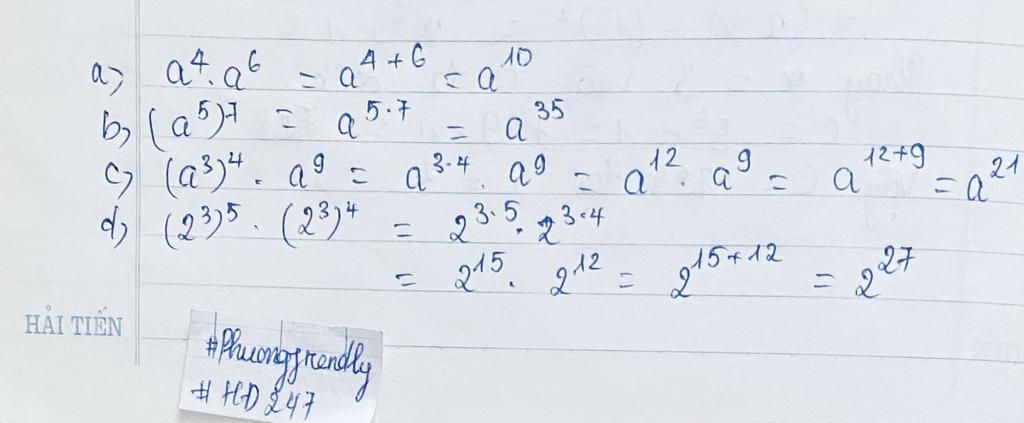 a) a⁴. a⁶ = a⁴⁺⁶ = a¹⁰
b) (a⁵)⁷ = a⁵·⁷ = a³⁵
c) (a³)⁴ . a⁹ = a³·⁴ . a⁹ = a¹² . a⁹ = a¹²⁺⁹ = a²¹
d) (2³)⁵ . (2³)⁴ = 2³·⁵ . 2³·⁴
= 2¹⁵ . 2¹² = 2¹⁵⁺¹² = 2²⁷
HẢI TIẾN
#Phuongfrendly
# HD 247